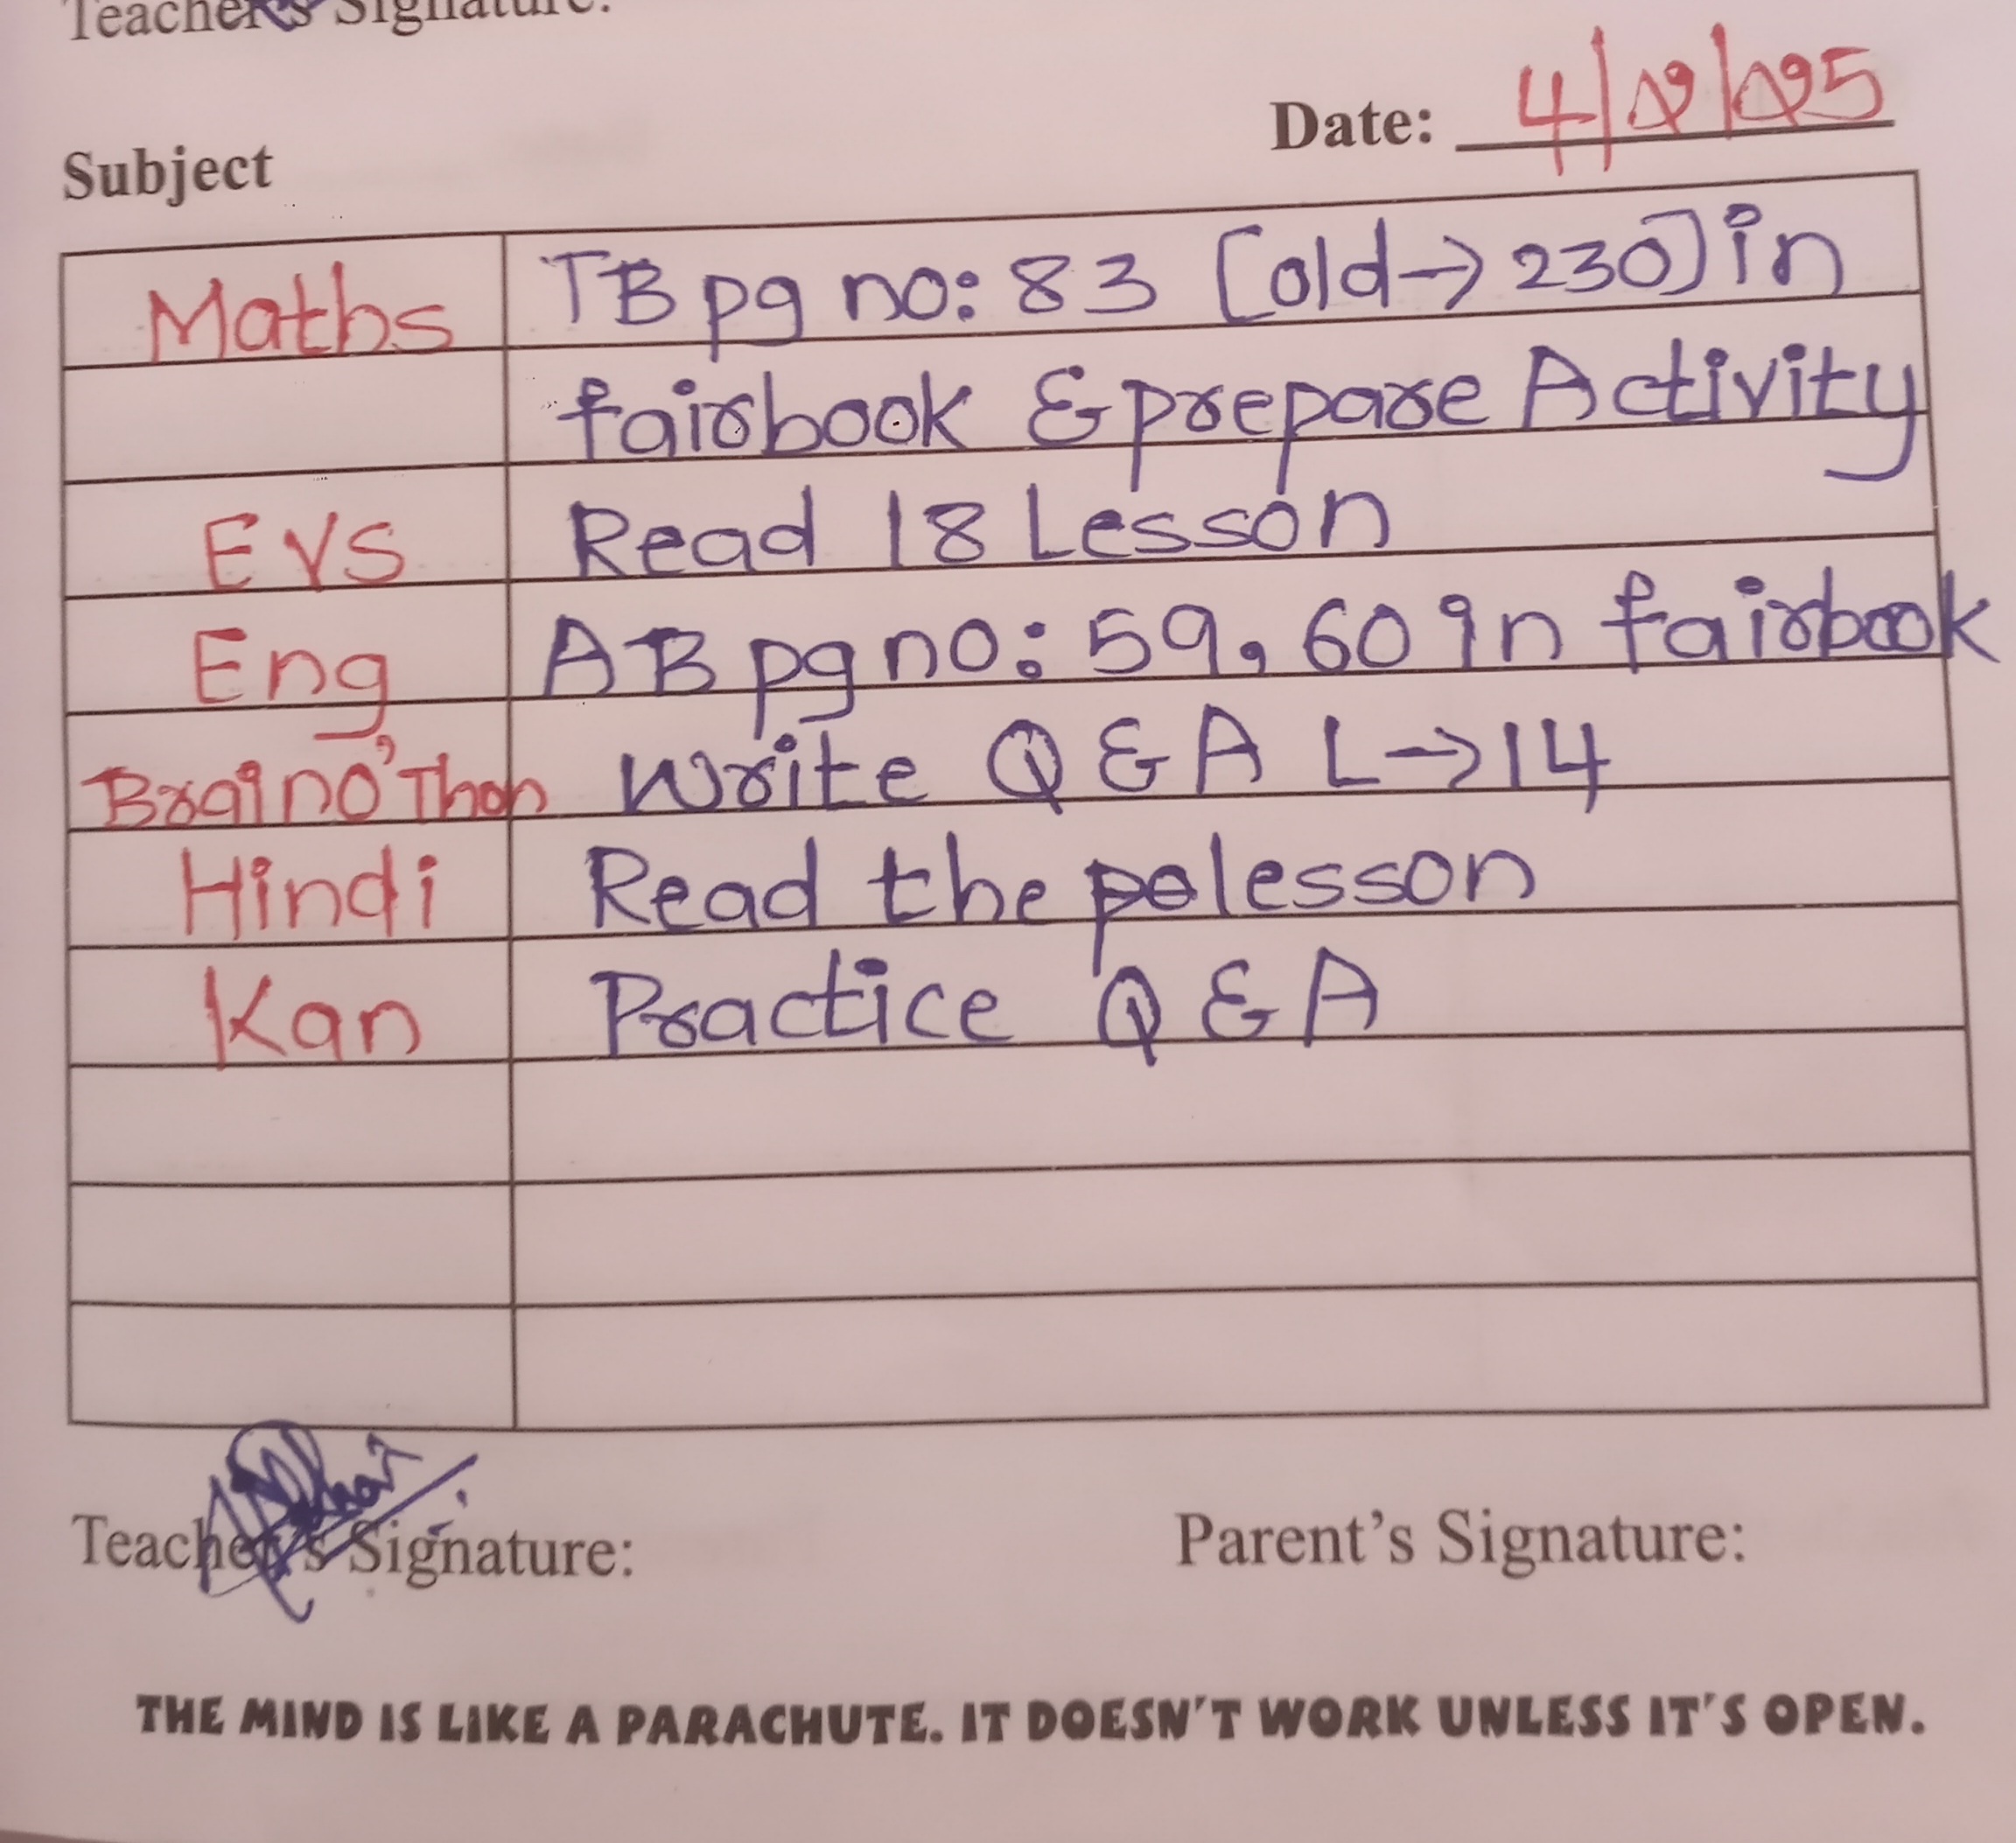 Teacher's Signature:
Date: 4/2/25
Subject
Maths TB pg no: 83 [old→230] in
fairbook & prepare Activity
EVS Read 18 Lesson
Eng AB pg no: 59, 60 in fairbook
Braino'Thon Write Q & A L→14
Hindi Read the lesson
Kan Practice Q & A
Teacher's Signature: Parent's Signature:
THE MIND IS LIKE A PARACHUTE. IT DOESN'T WORK UNLESS IT'S OPEN.